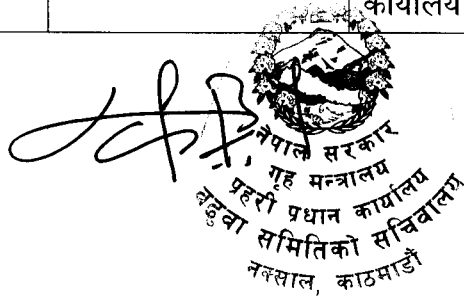 कार्यालय
नेपाल सरकार
गृह मन्त्रालय
प्रहरी प्रधान कार्यालय
बढुवा समितिको सचिवालय
नक्साल, काठमाडौं